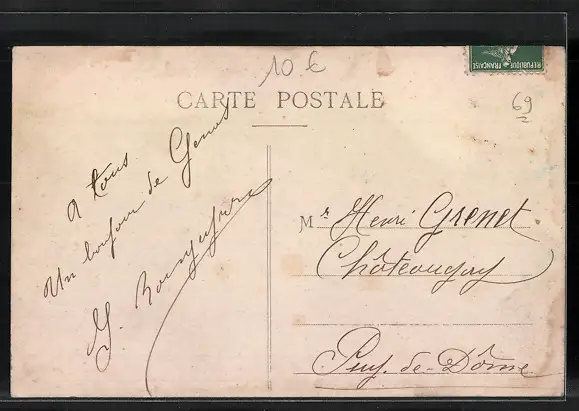 10 €
RÉPUBLIQUE FRANÇAISE
CARTE POSTALE
69
a tous
Un bonjour de
Mr Henri Grenet
Châteaugay
Puy-de-Dôme